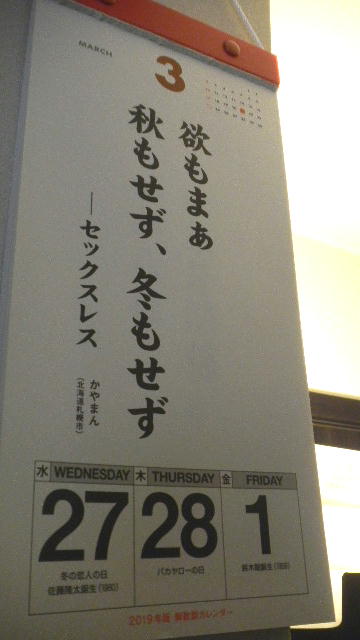 MARCH
3
欲もまぁ
秋もせず、冬もせず
―セックスレス
かやまん
(北海道札幌市)
水 WEDNESDAY 木 THURSDAY 金 FRIDAY
27 28 1
冬の恋人の日
佐藤隆太誕生(1980)
バカヤローの日
2019年版 カレンダー